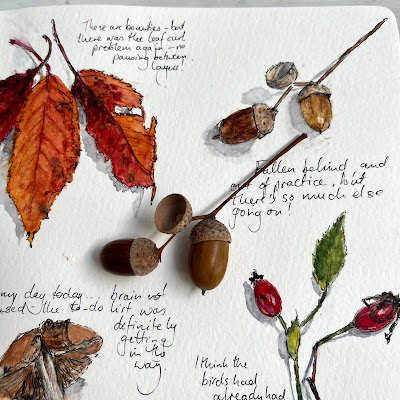 These are beauties - but
there was the leaf curl
problem again - no
pausing between
layers!
Fallen behind and
out of practice, but
there's so much else
going on!
my day today... brain not
used - the to-do list was
definitely
getting
in the
way.
I think the
birds had
already had